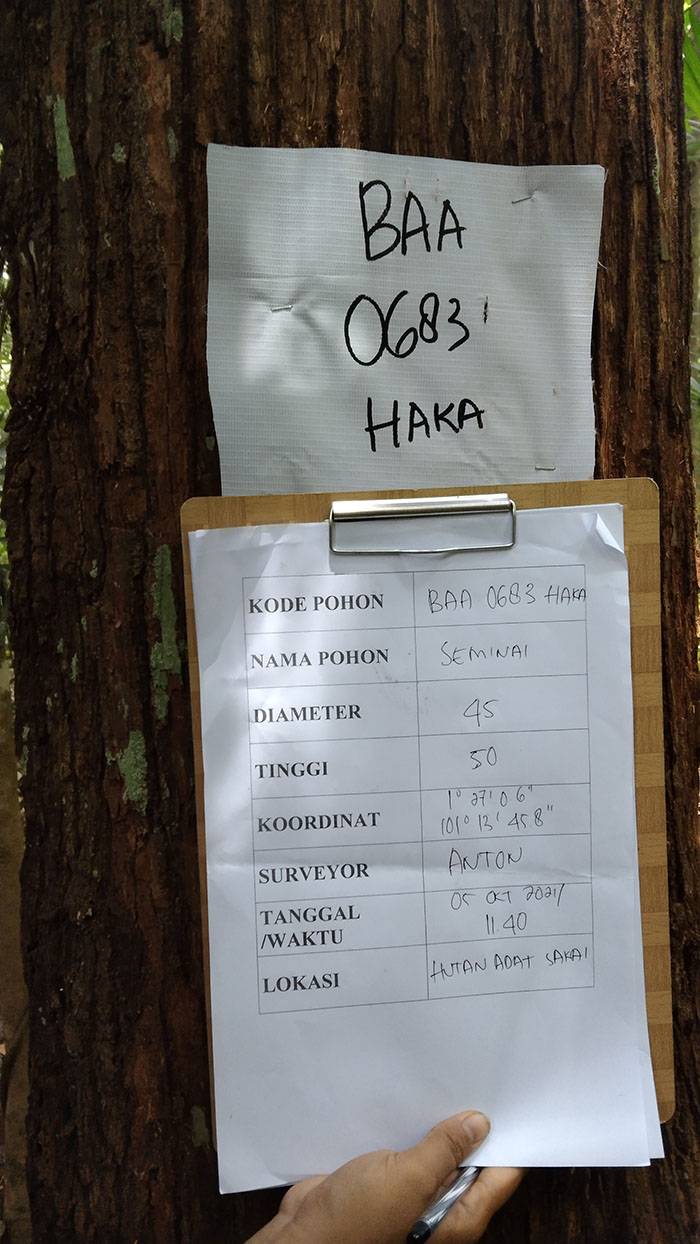 BAA
0683
HAKA
KODE POHON BAA 0683 HAKA
NAMA POHON SEMINAI
DIAMETER 45
TINGGI 50
KOORDINAT 1° 27' 0.6"
101° 13' 45.8"
SURVEYOR ANTON
TANGGAL
/WAKTU 05 OKT 2021/
11.40
LOKASI HUTAN ADAT SAKAI